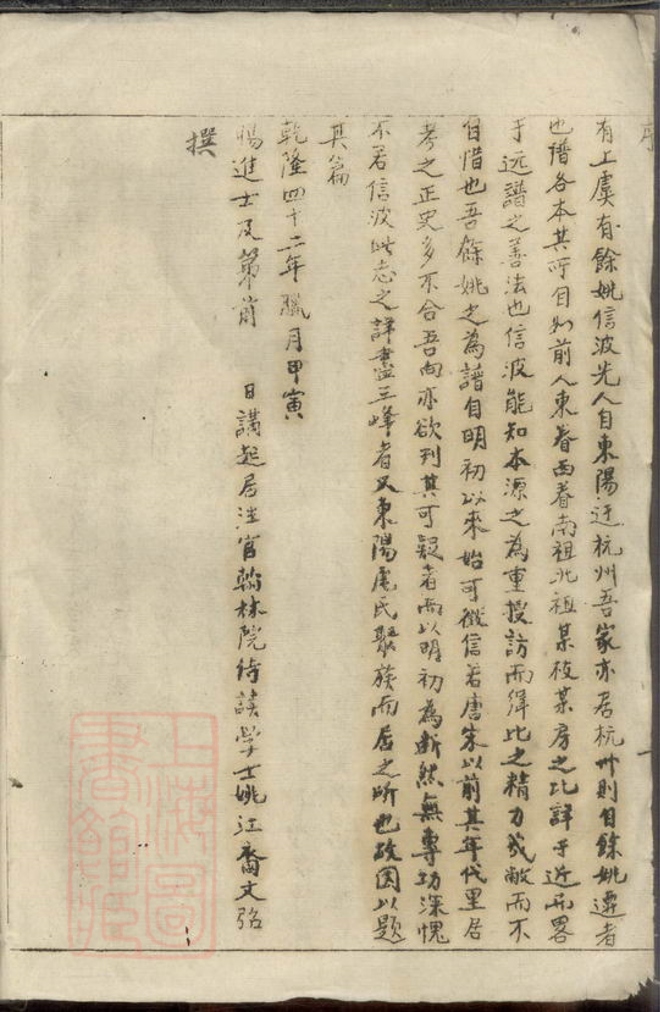 序
有上虞有餘姚信波先人自東陽迁杭州吾家亦居杭州則自餘姚遷者
也譜各本其所自如前人東眷西眷南祖北祖某枝某房之比詳于近而畧
于远譜之善法也信波能知本源之為重搜訪而得比之精力茂敝而不
自惜也吾餘姚之為譜自明初以來始可徵信若唐宋以前其年代里居
考之正史多不合吾向亦欲列其可疑者而以明初為断然無專功深愧
不若信波此志之詳盡三峰者又東陽盧氏聚族而居之所也故因以題
其篇
乾隆四十二年臘月甲寅
賜進士及第前 日講起居注官翰林院侍讀學士姚江裔文弨
撰
上海圖書館藏